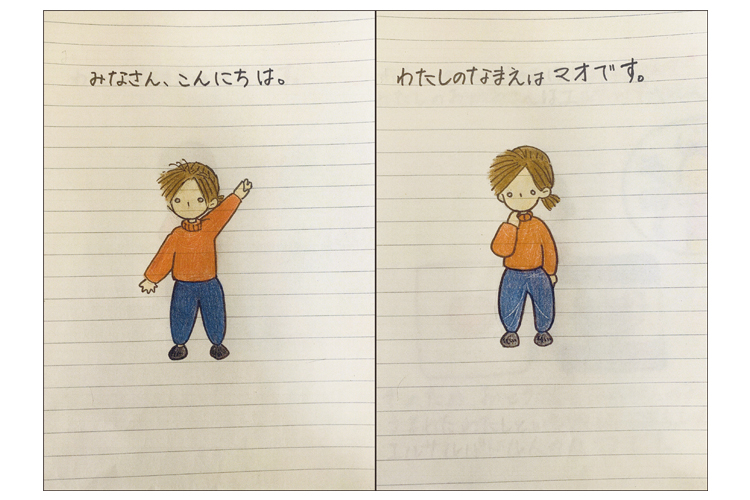 みなさん、こんにちは。
わたしのなまえは マオです。